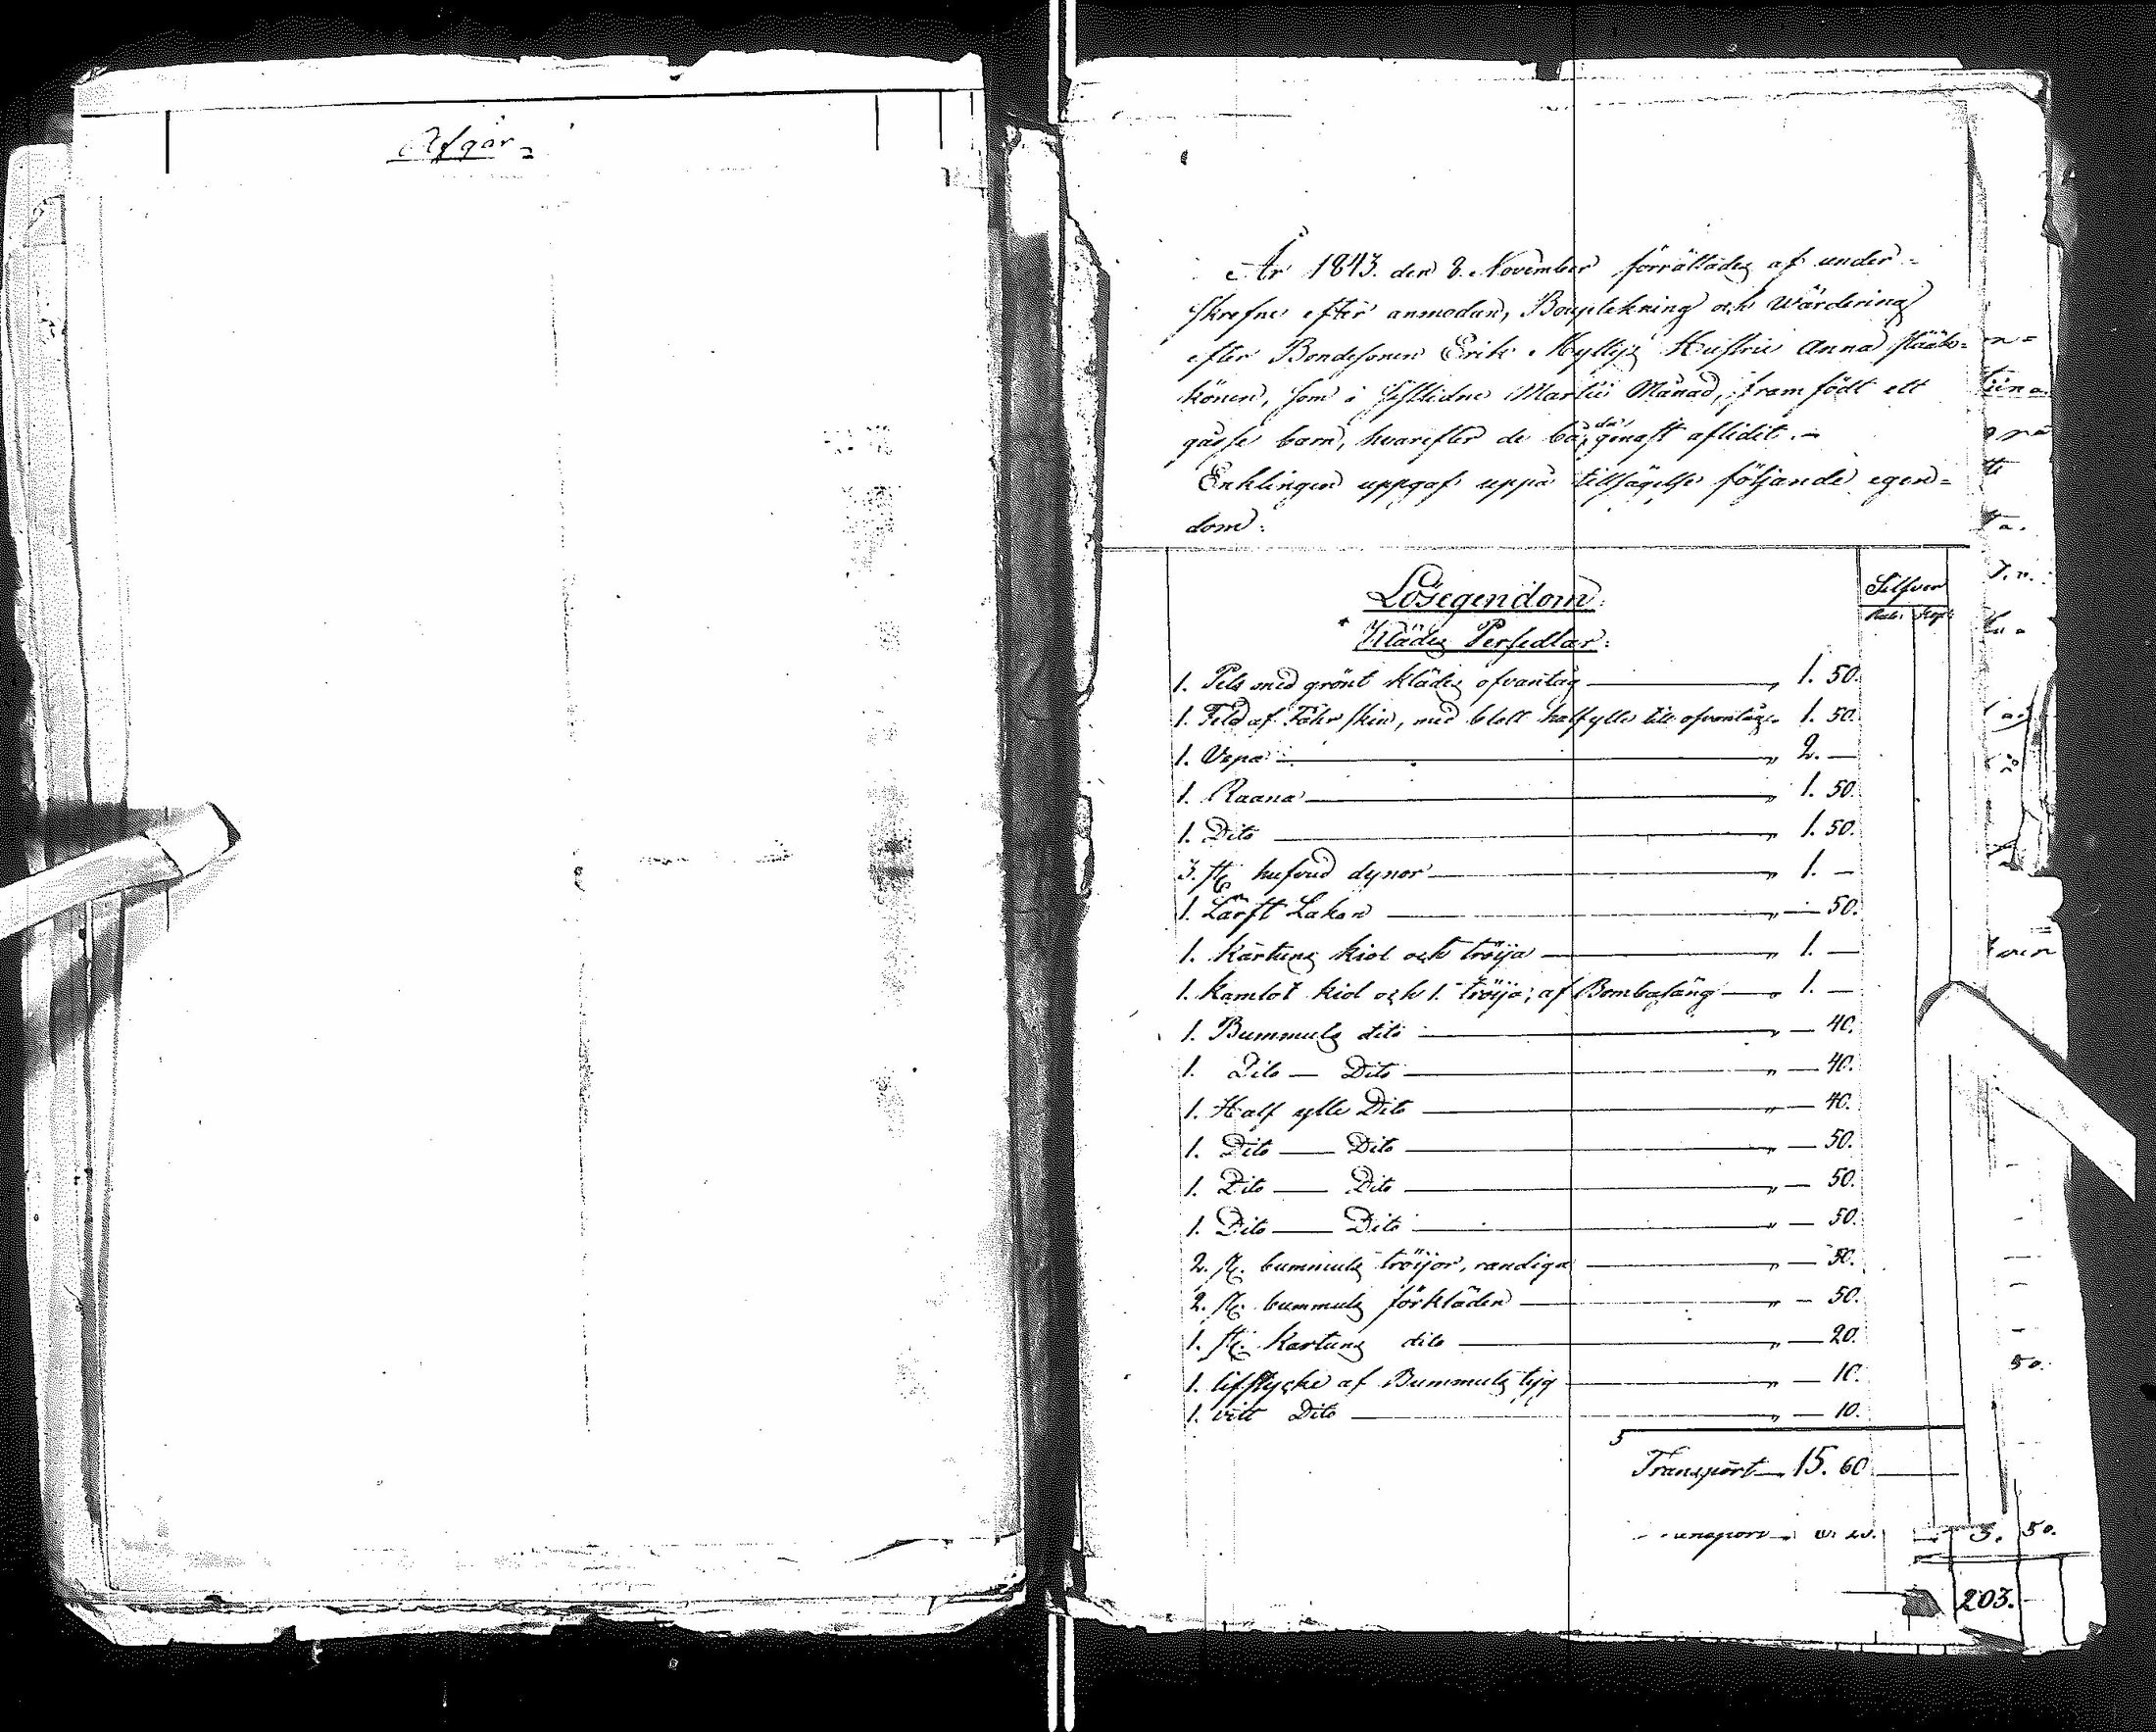 Afgår
År 1843. den 8. November förrättades af under-
skrefne efter anmodan, Bouptekning och Wärdering
efter Bondesonen Erik Myllys Hustru Anna Jääs-
könen, som i sistlidne Martii Månad, framfödt ett
gåsse barn, hvarefter de båda genast aflidit.-
Enklingen uppgaf uppå tillsägelse följande egen-
dom:
Lösegendom:
Silfver
Rub: Kop:
Klädes Persedlar:
1. Pels med grönt klädes ofvantÿg " 1. 50.
1. Feld af Fåhrskin, med blått halfylle till ofvantÿg " 1. 50.
1. " 2. —
1. Raana " 1. 50.
1. Dito " 1. 50.
3. st: hufvud dynor " 1. —
1. Lärft Lakan " — 50.
1. Kartuns kiol och tröija " 1. —
1. Kamlot kiol och 1. tröija, af Bombasäng " 1. —
1. Bummuls dito " — 40.
1. Dito — Dito " — 40.
1. Half ylle Dito " — 40.
1. Dito — Dito " — 50.
1. Dito — Dito " — 50.
1. Dito — Dito " — 50.
2. st. bummuls tröijor, randiga " — 50.
2. st. bummuls förkläden " — 50.
1. st. Kartuns dito " — 20.
1. lifstycke af Bummuls tÿg " — 10.
1. vitt Dito " — 10.
Transport 15. 60
50.
3. 50.
203.